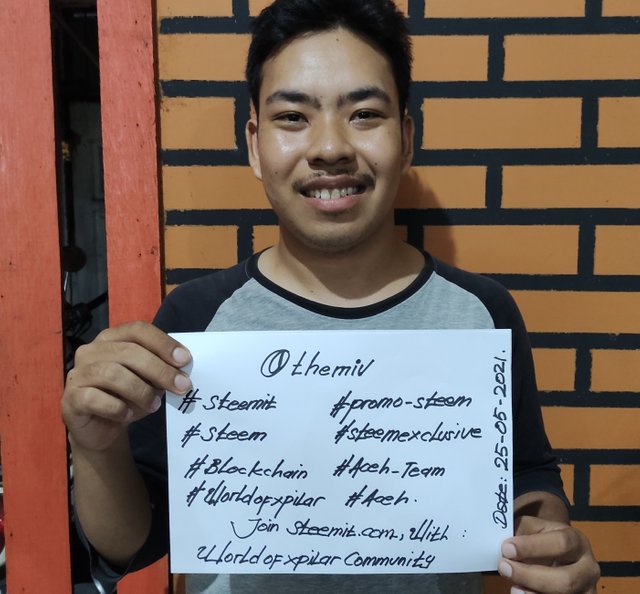 @themiv
#Steemit #promo-steem
#Steem #steemexclusive
#Blockchain #Aceh-Team
#Worldofxpilar #Aceh.
Join steemit.com, With :
Worldofxpilar Community
Date: 25-05-2021.